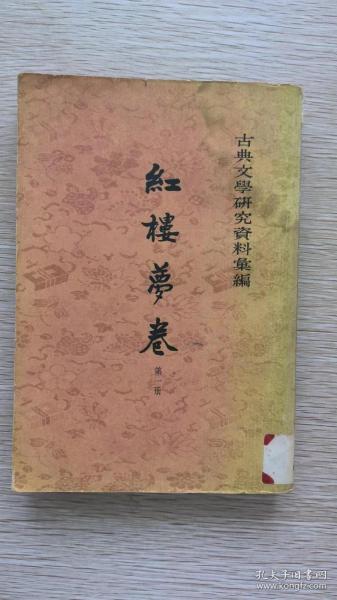 古典文學研究資料彙編
紅樓夢卷
第一册
孔夫子旧书网
www.kongfz.com